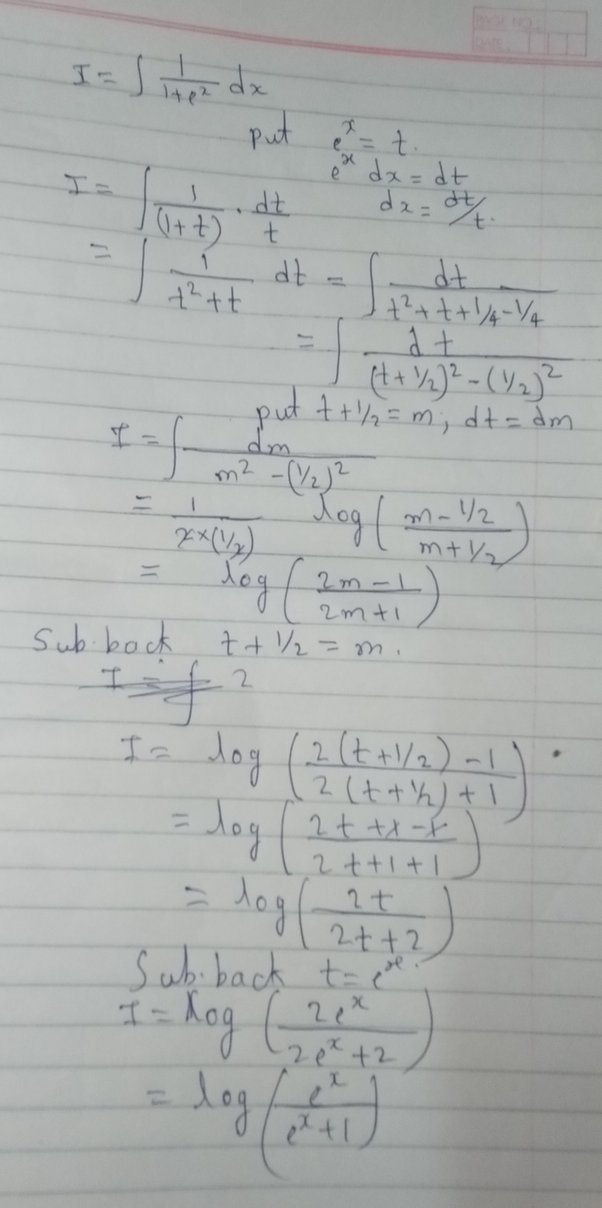 PAGE NO.:
DATE:
I = ∫ 1/(1+e^x) dx
put e^x = t.
e^x dx = dt
I = ∫ 1/(1+t) · dt/t dx = dt/t.
= ∫ 1/(t²+t) dt = ∫ dt/(t²+t+1/4-1/4)
= ∫ dt/((t+1/2)²-(1/2)²)
put t+1/2 = m, dt = dm
I = ∫ dm/(m²-(1/2)²)
= 1/(2×(1/2)) log((m-1/2)/(m+1/2))
= log((2m-1)/(2m+1))
Sub. back t+1/2 = m.
I = ∫ 2
I = log((2(t+1/2)-1)/(2(t+1/2)+1))
= log((2t+1-1)/(2t+1+1))
= log(2t/(2t+2))
Sub. back t = e^x.
I = log(2e^x/(2e^x+2))
= log(e^x/(e^x+1))